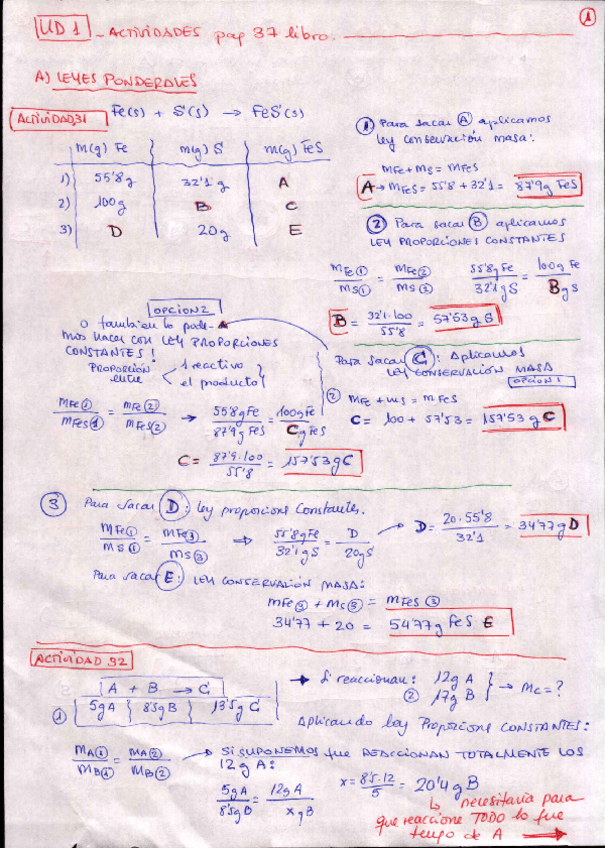 1
UD 1 - ACTIVIDADES pag 37 libro.
A) LEYES PONDERALES
ACTIVIDAD 31 Fe(s) + S(s) → FeS(s)
m(g) Fe m(g) S m(g) FeS
1) 55'8g 32'1 g A
2) 100g B C
3) D 20g E
1 Para sacar A aplicamos
ley conservación masa:
mFe + mS = mFeS
A → mFeS = 55'8 + 32'1 = 87'9g FeS
2 Para sacar B aplicamos
LEY PROPORCIONES CONSTANTES
mFe① / mS① = mFe② / mS② 55'8g Fe / 32'1g S = 100g Fe / B g S
B = 32'1·100 / 55'8 = 57'53g S
OPCION 2
O también lo pode-
mos hacer con LEY PROPORCIONES
CONSTANTES!
PROPORCIÓN entre 1 reactivo
el producto
mFe① / mFeS① = mFe② / mFeS② → 55'8g Fe / 87'9g FeS = 100g Fe / C g FeS
C = 87'9·100 / 55'8 = 157'53 g C
Para sacar C: Aplicamos
LEY CONSERVACIÓN MASA
OPCION 1
② mFe + mS = mFeS
C = 100 + 57'53 = 157'53 g C
3 Para sacar D: ley proporcione Constantes.
mFe① / mS① = mFe③ / mS③ ⇒ 55'8g Fe / 32'1g S = D / 20g S → D = 20·55'8 / 32'1 = 34'77 g D
Para sacar E: LEY CONSERVACIÓN MASA:
mFe③ + mC③ = mFeS③
34'77 + 20 = 54'77g FeS E
ACTIVIDAD 32
A + B → C
① 5g A 8'5g B 13'5g C
→ Si reaccionan: ② 12g A 17g B → mC = ?
Aplicando ley Proporcione CONSTANTES:
mA① / mB① = mA② / mB② → SI SUPONEMOS que REACCIONAN TOTALMENTE LOS
12g A:
5g A / 8'5g B = 12g A / x g B x = 8'5·12 / 5 = 20'4 g B
↳ necesitaria para
que reaccione TODO lo que
tengo de A →